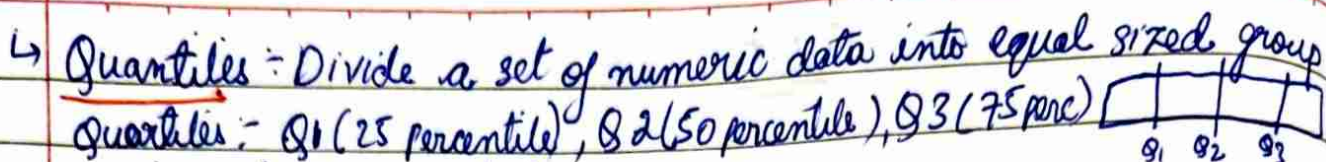 ↳ Quantiles :- Divide a set of numeric data into equal sized group
Quartiles :- Q1 (25 percentile), Q2 (50 percentile), Q3 (75 perc)
Q1 Q2 Q3